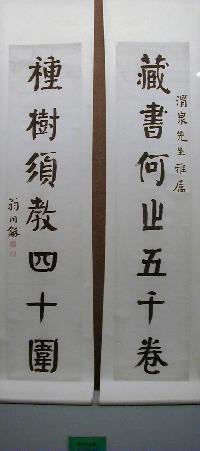 渭泉先生雅属
藏書何止五千卷
種樹須教四十圍
翁同龢